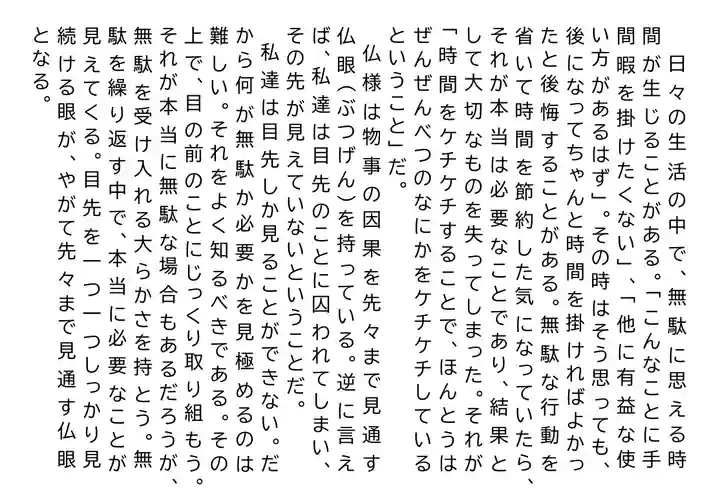 日々の生活の中で、無駄に思える時
間が生じることがある。「こんなことに手
間暇を掛けたくない」、「他に有益な使
い方があるはず」。その時はそう思っても、
後になってちゃんと時間を掛ければよかっ
たと後悔することがある。無駄な行動を
省いて時間を節約した気になっていたら、
それが本当は必要なことであり、結果と
して大切なものを失ってしまった。それが
「時間をケチケチすることで、ほんとうは
ぜんぜんべつのなにかをケチケチしている
ということ」だ。
仏様は物事の因果を先々まで見通す
仏眼（ぶつげん）を持っている。逆に言え
ば、私達は目先のことに囚われてしまい、
その先が見えていないということだ。
私達は目先しか見ることができない。だ
から何が無駄か必要かを見極めるのは
難しい。それをよく知るべきである。その
上で、目の前のことにじっくり取り組もう。
それが本当に無駄な場合もあるだろうが、
無駄を受け入れる大らかさを持とう。無
駄を繰り返す中で、本当に必要なことが
見えてくる。目先を一つ一つしっかり見
続ける眼が、やがて先々まで見通す仏眼
となる。